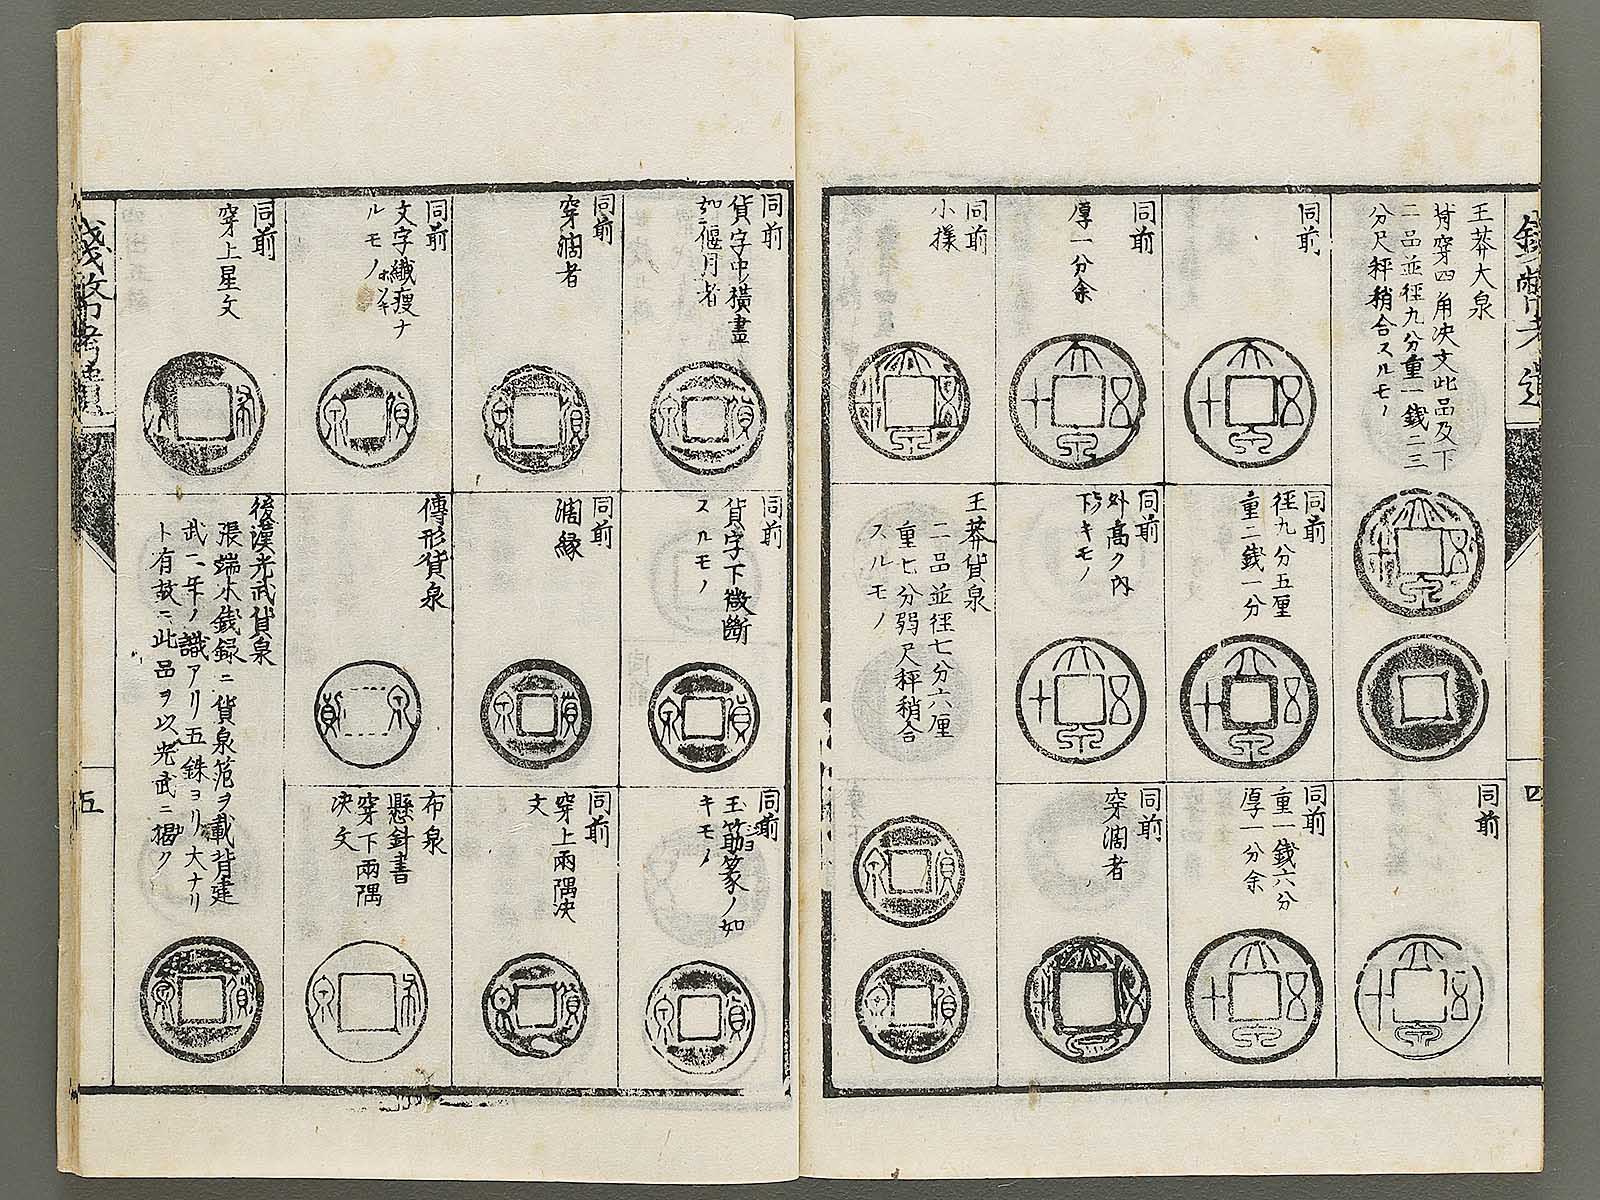 王莽大泉
背穿四角决文此品及下
二品並徑九分重一錢二三
分尺秤稍合スルモノ
同前
同前
徑九分五厘
重二錢一分
同前
重一錢六分
厚一分余
同前
同前
厚一分余
同前
外高ク内
下キモノ
同前
穿濶者
同前
小樣
王莽貨泉
二品並徑七分六厘
重七分弱尺秤稍合
スルモノ
四
同前
貨字中橫畫
如偃月者
同前
貨字下微斷
スルモノ
同前
玉筯篆ノ如
キモノ
同前
穿濶者
同前
濶縁
同前
穿上兩隅决
文
同前
文字纖瘦ナ
ルモノ
傳形貨泉
布泉
懸針書
穿下兩隅
决文
同前
穿上星文
後漢光武貨泉
張端木錢録ニ貨泉笵ヲ載背建
武二年ノ識アリ五銖ヨリ大ナリ
ト有故ニ此品ヲ以光武ニ揭ク
五